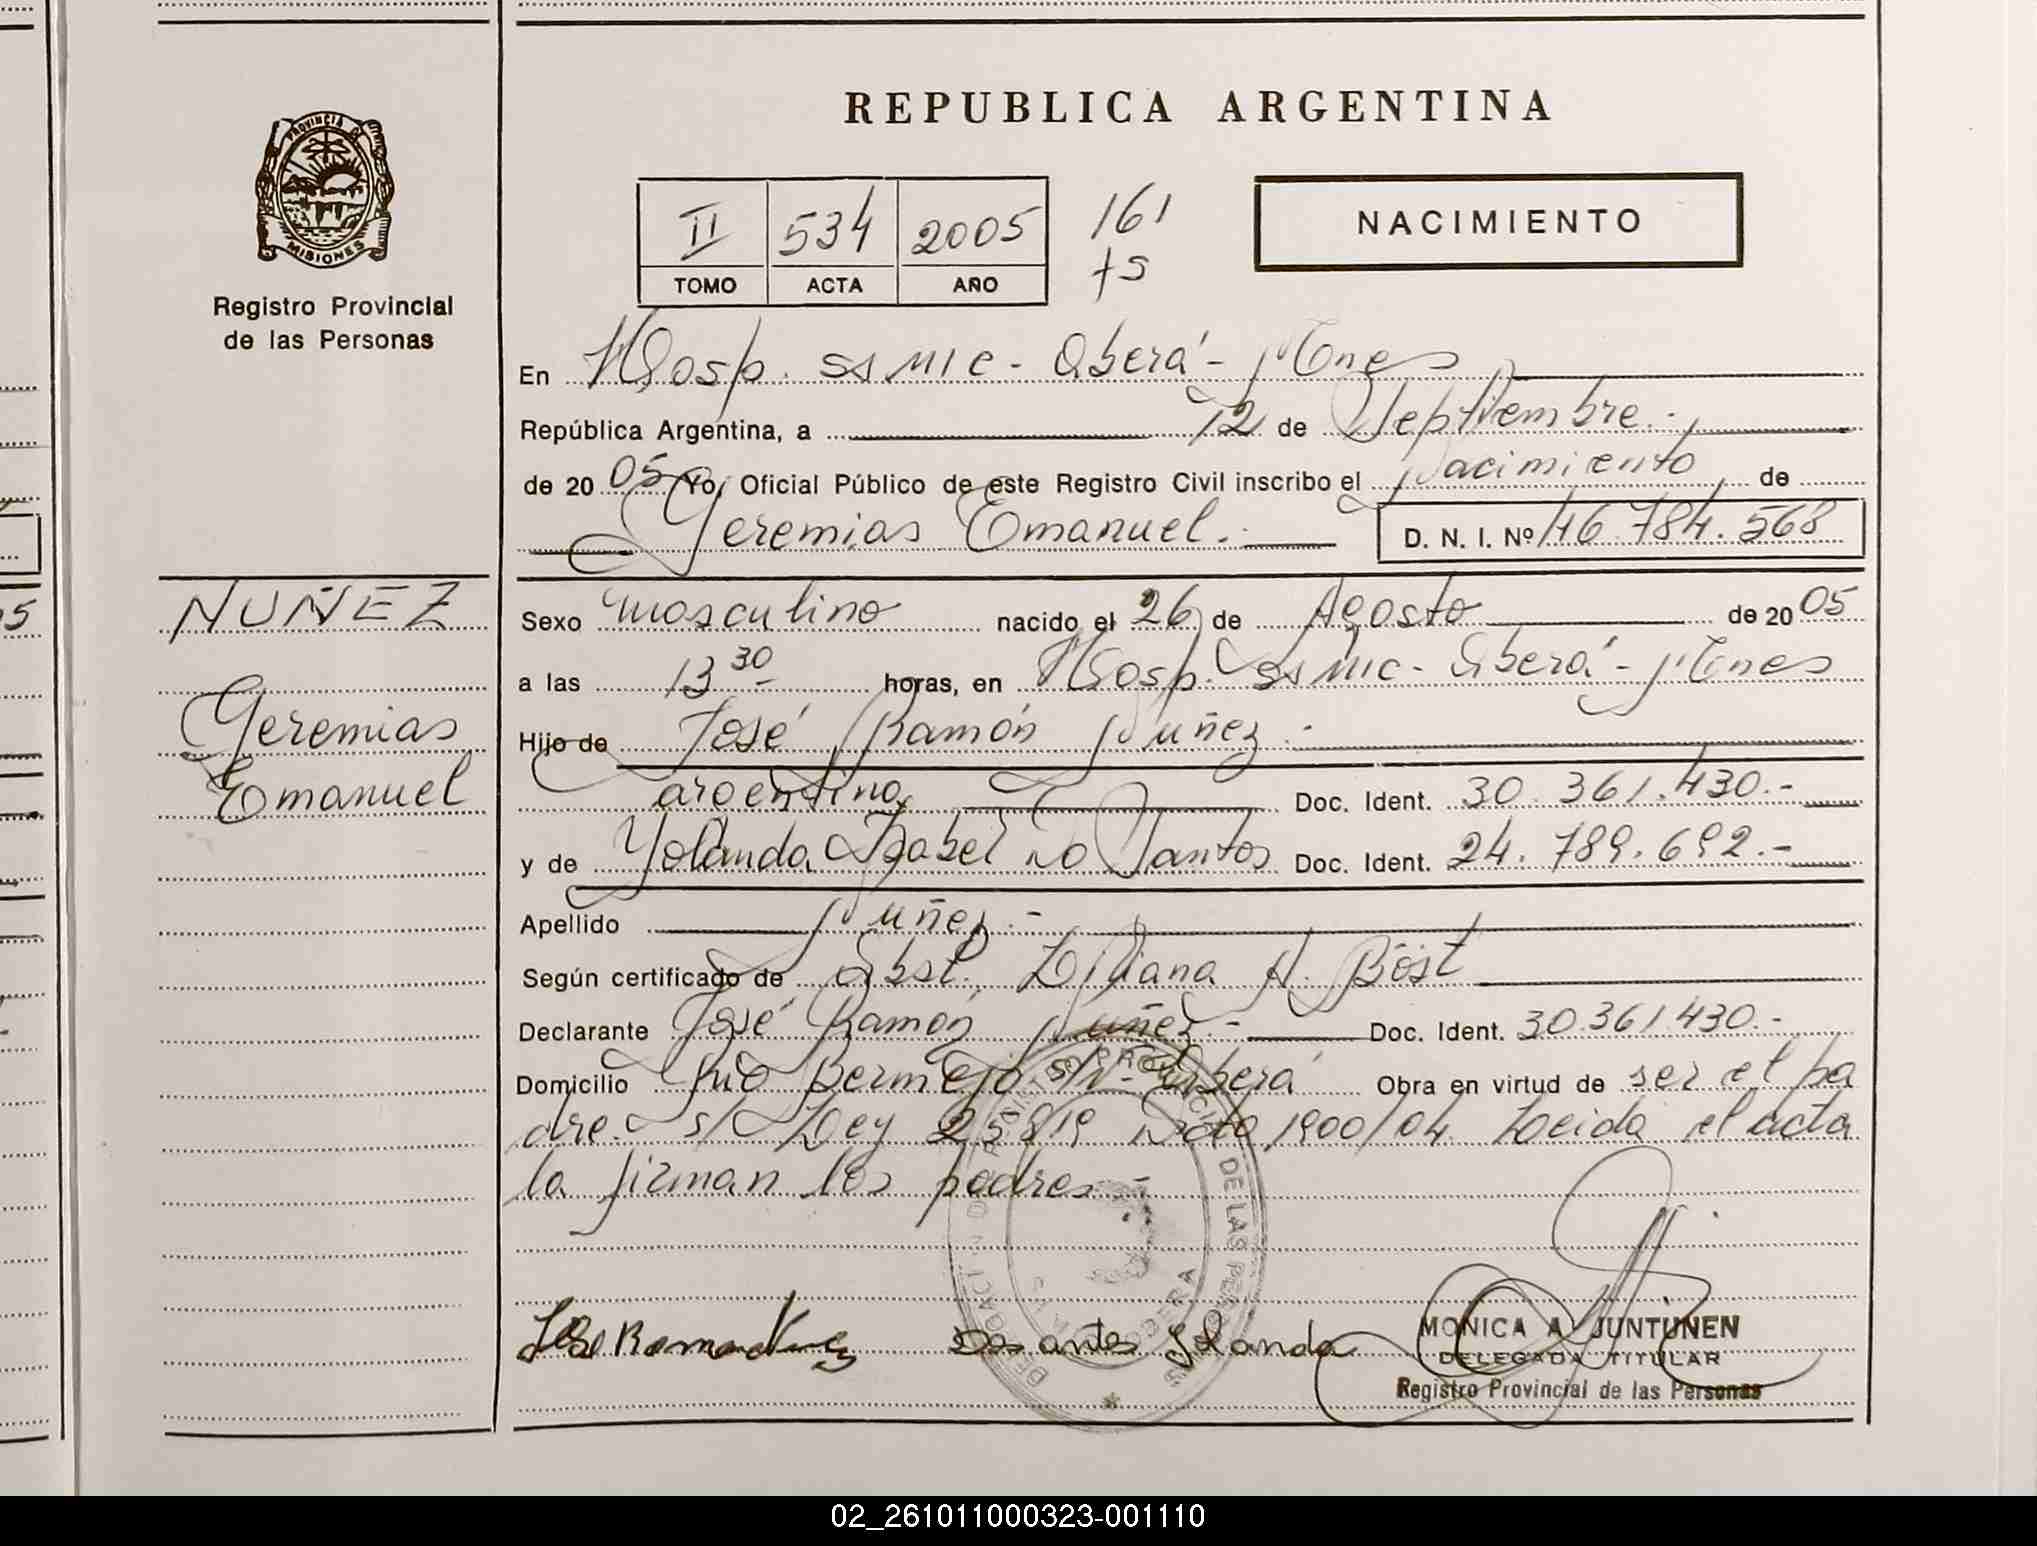 REPUBLICA ARGENTINA
PROVINCIA DE
MISIONES
Registro Provincial
de las Personas
II 534 2005 161
TOMO ACTA AÑO
NACIMIENTO
En Hosp. SAMIC - Oberá - Mnes
República Argentina, a 12 de Septiembre.-
de 2005 Yo, Oficial Público de este Registro Civil inscribo el Nacimiento de
Geremias Emanuel.- D. N. I. Nº 46.784.568
NUÑEZ
Geremias
Emanuel
Sexo masculino nacido el 26 de Agosto de 2005
a las 13 30 horas, en Hosp. SAMIC - Oberá - Mnes
Hijo de José Ramón Nuñez.-
argentino Doc. Ident. 30.361.430.-
y de Yolanda Isabel Do Santos Doc. Ident. 24.789.692.-
Apellido Nuñez.-
Según certificado de Obst. Liliana N. Böst
Declarante José Ramón Nuñez.- Doc. Ident. 30.361.430.-
Domicilio Rio Bermejo s/n - Oberá Obra en virtud de ser el pa
dre. s/ Ley 25819 Dcto 1900/04. Leida el acta
la firman los padres.-
DELEGACION OBERA
REGISTRO PROVINCIAL DE LAS PERSONAS
MISIONES
Jose Ramon Nuñez Dos antos Yolanda
MONICA A. JUNTUNEN
DELEGADA TITULAR
Registro Provincial de las Personas
02_261011000323-001110